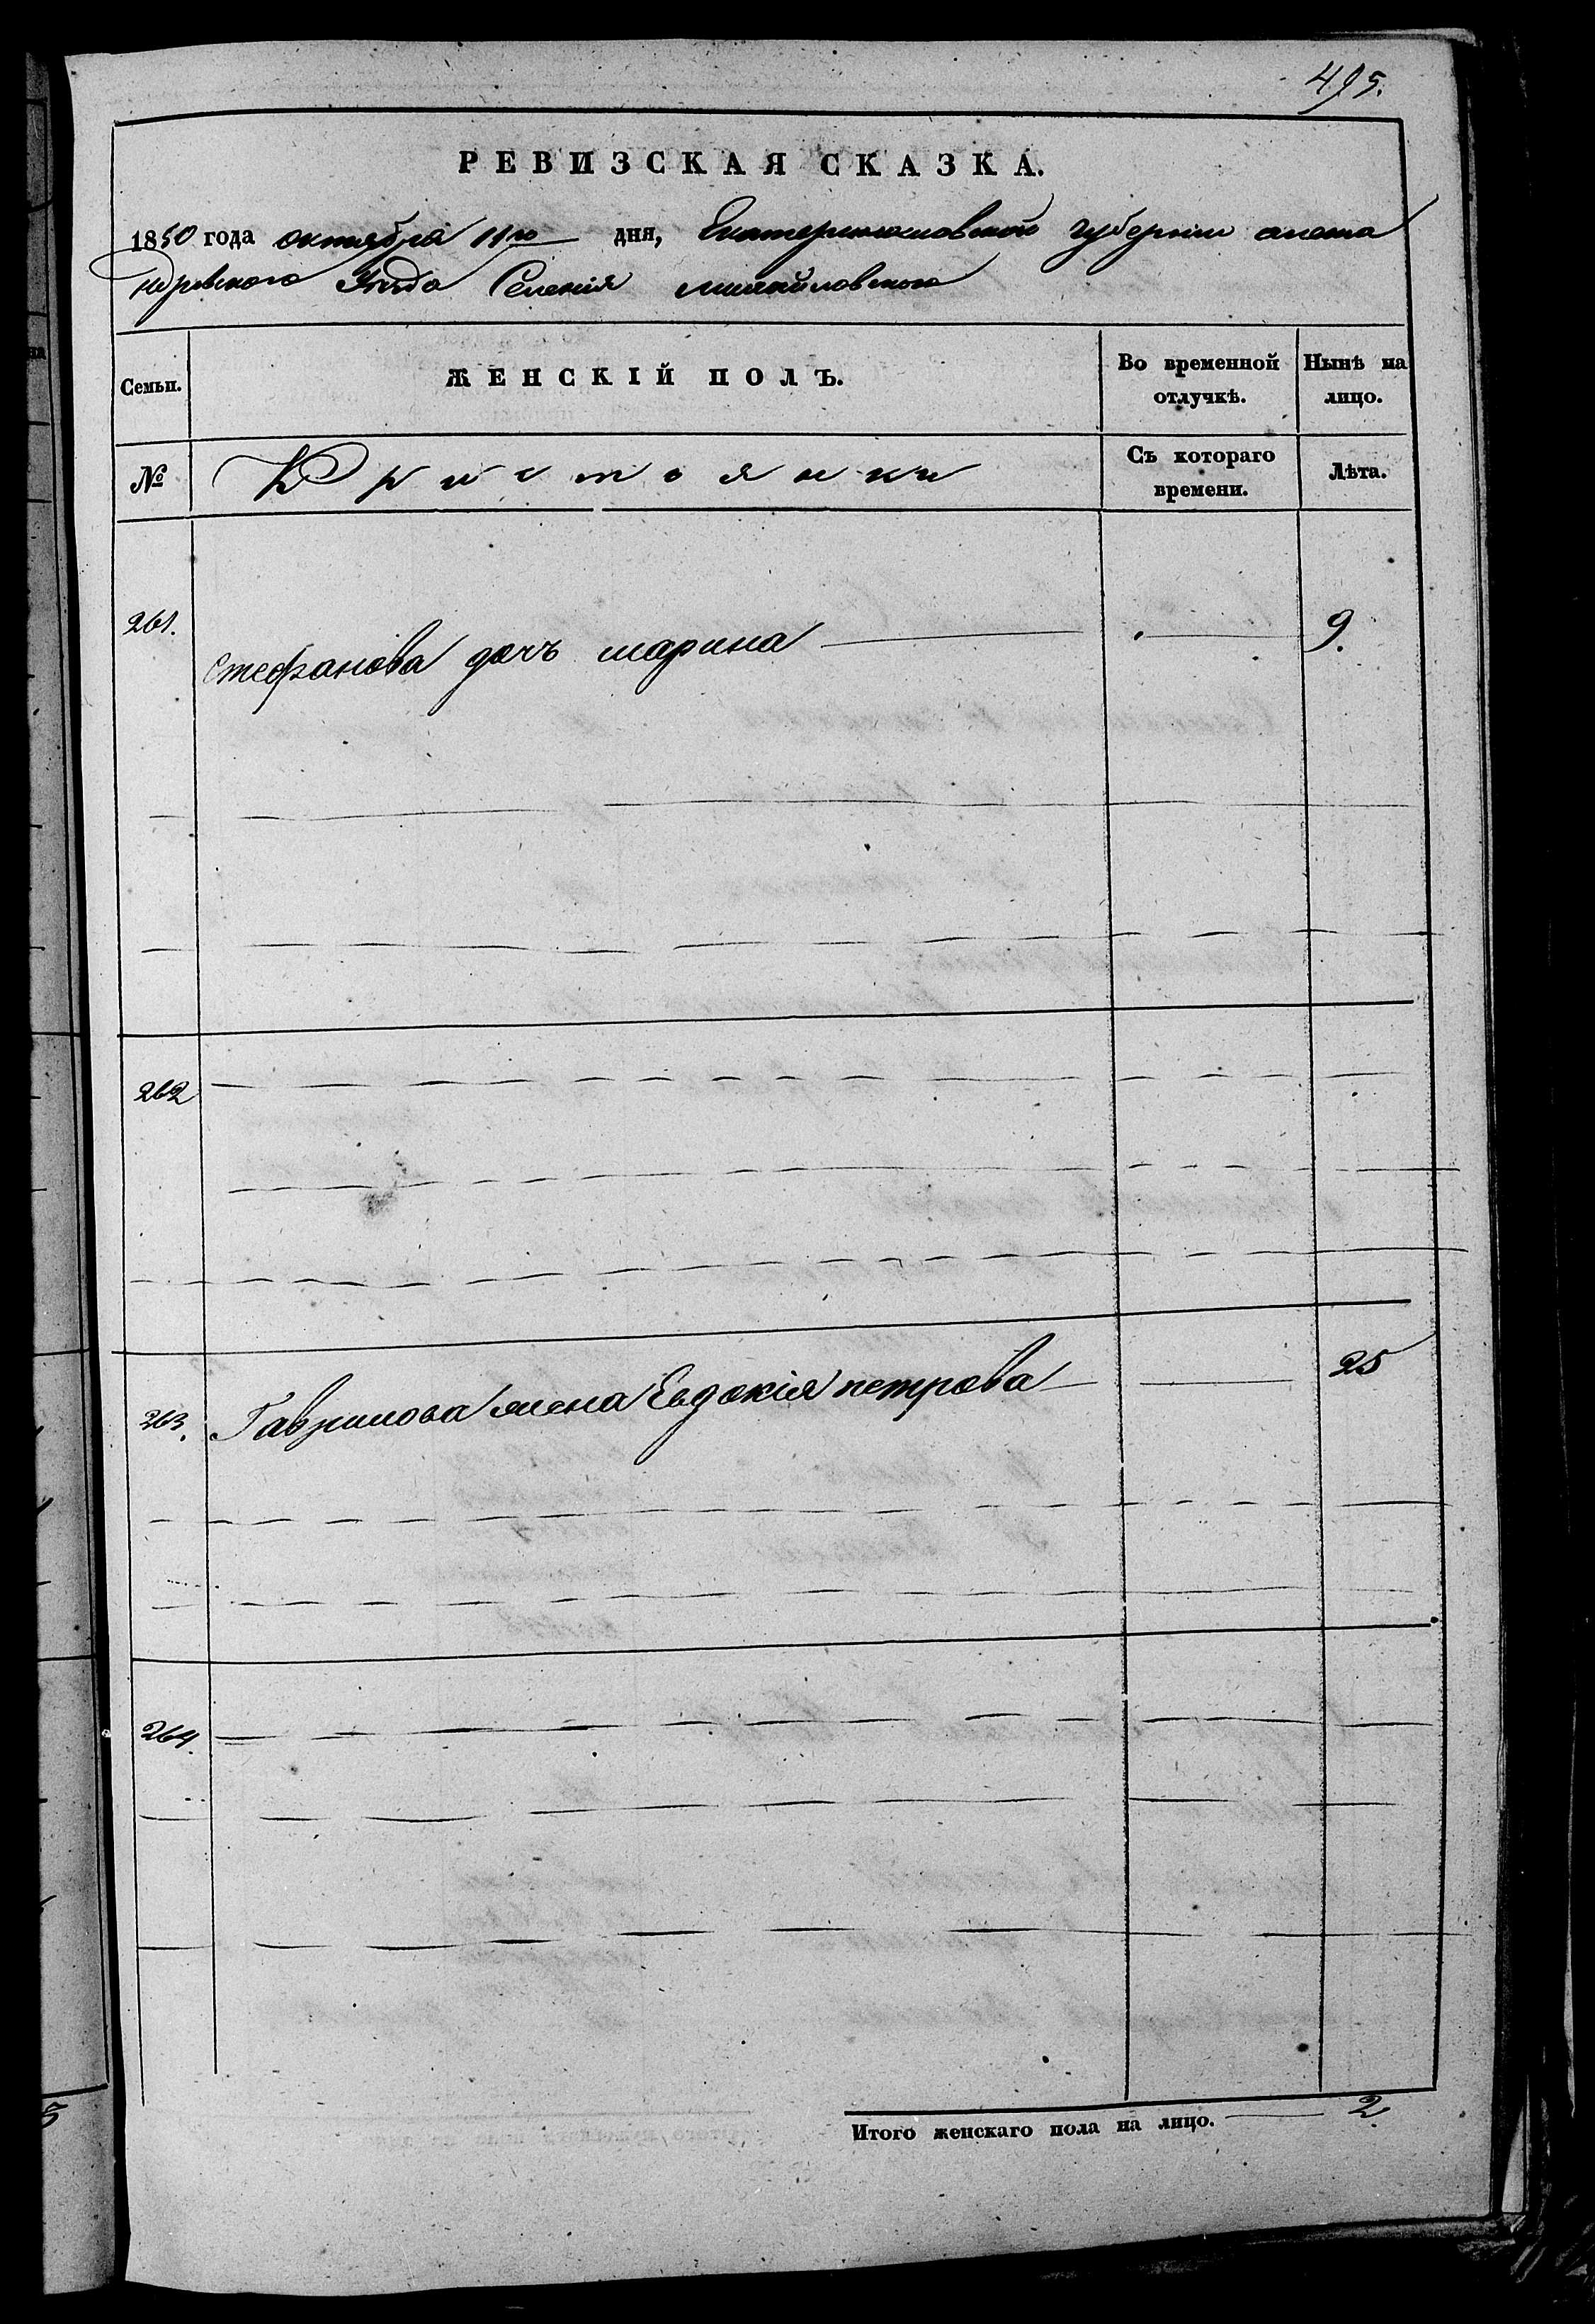 495.
РЕВИЗСКАЯ СКАЗКА.
1850 года октября 11го дня, Екатеринославской губернии алекса
ндровского Уезда Селения михайловского
Семьи. ЖЕНСКІЙ ПОЛЪ. Во временной отлучкѣ. Нынѣ на лицо.
№ Кристоянки Съ котораго времени. Лѣта.
261. Стефанова дочъ марина 9.
262
263. Гаврилова жена Евдокія петрова 25
264.
Итого женскаго пола на лицо. 2